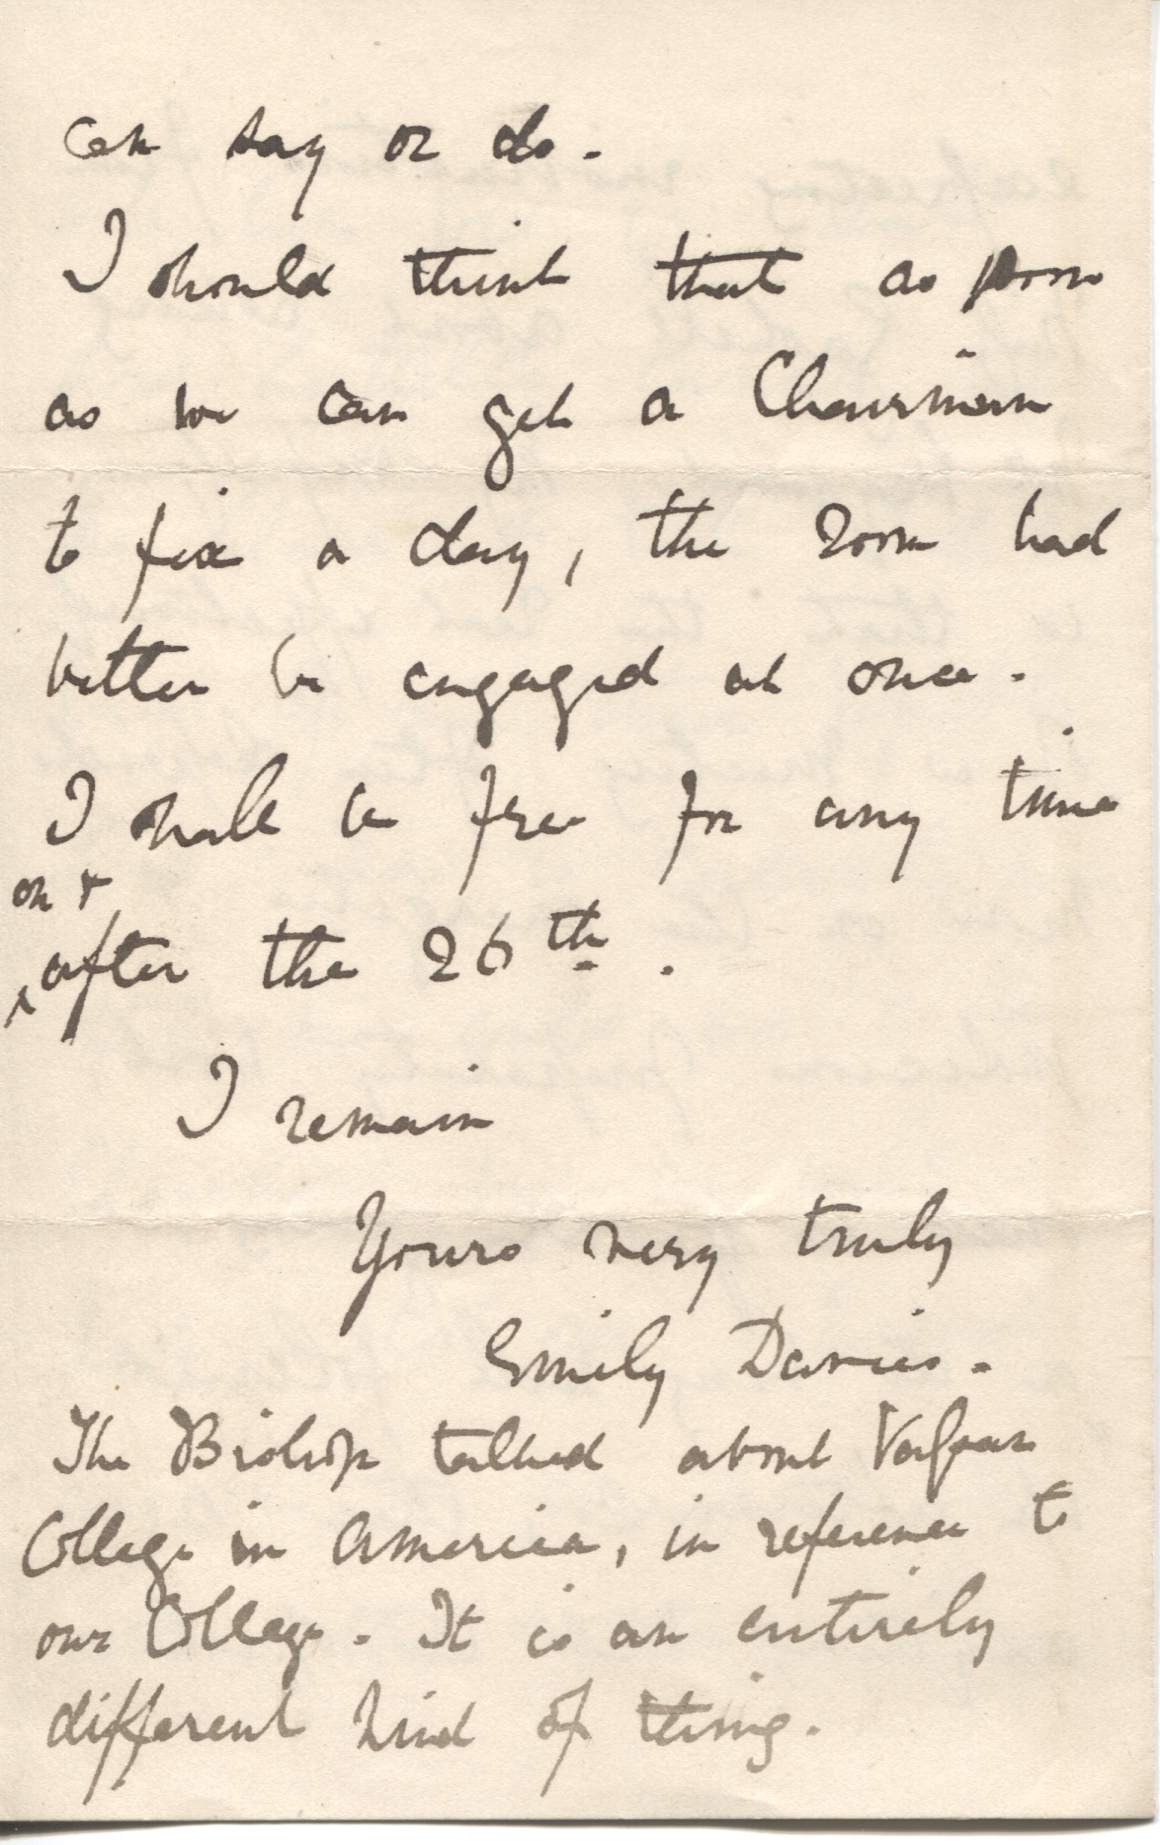 can say or do.
I should think that as soon
as we can get a Chairman
to fix a day, the room had
better be engaged at once.
I shall be free for any time
on &
after the 26th.
I remain
Yours very truly
Emily Davies.
The Bishop talked about Vassar
College in America, in reference to
our College. It is an entirely
different kind of thing.